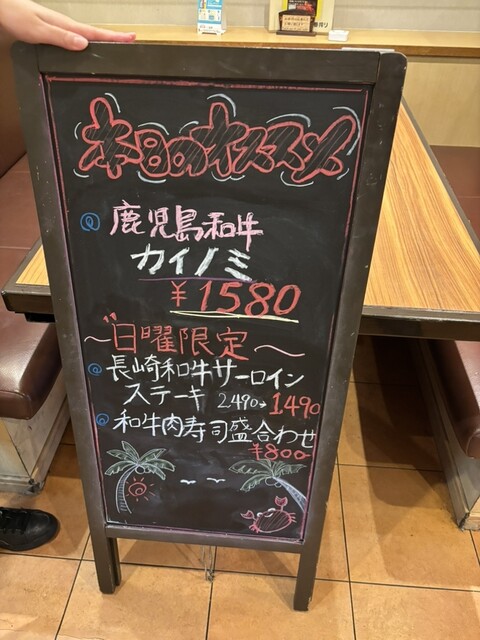 本日のオススメ
鹿児島和牛
カイノミ
¥1580
〜日曜限定〜
長崎和牛サーロイン
ステーキ 2490→1490
和牛肉寿司盛合わせ
¥800-